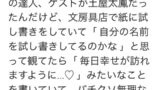 の達人、ゲストが土屋太鳳だっ
たんだけど、文房具店で紙に試
し書きをしていて「自分の名前
を試し書きしてるのかな」と思
って観てたら「毎日幸せが訪れ
ますように…♡」みたいなこと
を書いていて、バチクソ無理な